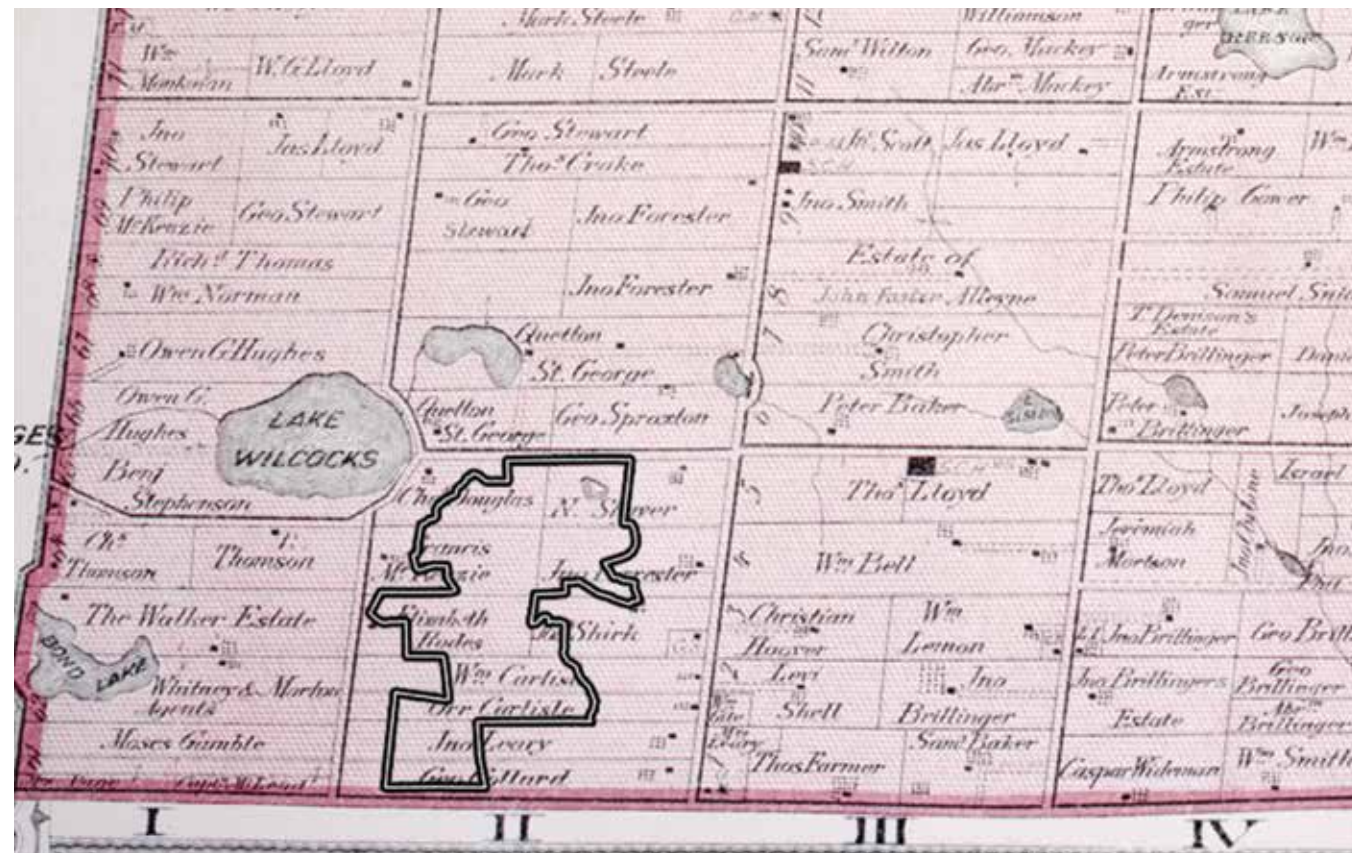 Mark Steele
Williamson
LAKE
Wm
Monkman
W. G. Lloyd
Mark Steele
11
Saml Wilton
Geo. Mackey
Abrm Mackey
Armstrong
Est.
Jno
Stewart
Jas Lloyd
Geo Stewart
Thos Crake
Scott
Jas Lloyd
Armstrong
Estate
Philip
McKenzie
Geo Stewart
Geo
Stewart
Jno Forester
9
Jno Smith
Philip Gower
Richd Thomas
Wm Norman
Jno Forester
8
Estate of
John Foster Alleyne
Samuel
T Denison's
Estate
67
Owen G Hughes
Quetton
St. George
7
Christopher
Smith
Peter Brillinger
Owen G.
Hughes
LAKE
WILCOCKS
Quetton
St. George
Geo Sproxton
6
Peter Baker
Peter
Brillinger
Joseph
Benj
Stephenson
Chas Douglas
N. Shaver
5
S.C.H.
Thos Lloyd
Thos Lloyd
Israel
Chs
Thomson
F.
Thomson
Francis
McKenzie
Jno Forester
4
Wm Bell
Jeremiah
Mortson
Jno.
The Walker Estate
Elizabeth
Rodes
Shirk
3
Christian
Hoover
Wm
Lemon
Jno Brillinger
Geo Brill
BOND LAKE
Whitney & Morton
Agents
Wm Carlisle
Orr Carlisle
2
Levi
Shell
Jno
Brillinger
Jno Brillingers
Estate
Geo
Brillinger
Abrm
Brillinger
Moses Gamble
Jno Leary
Geo Gollard
Leary
Thos Farmer
Saml Baker
Caspar Wideman
Wm Smith
I II III IV